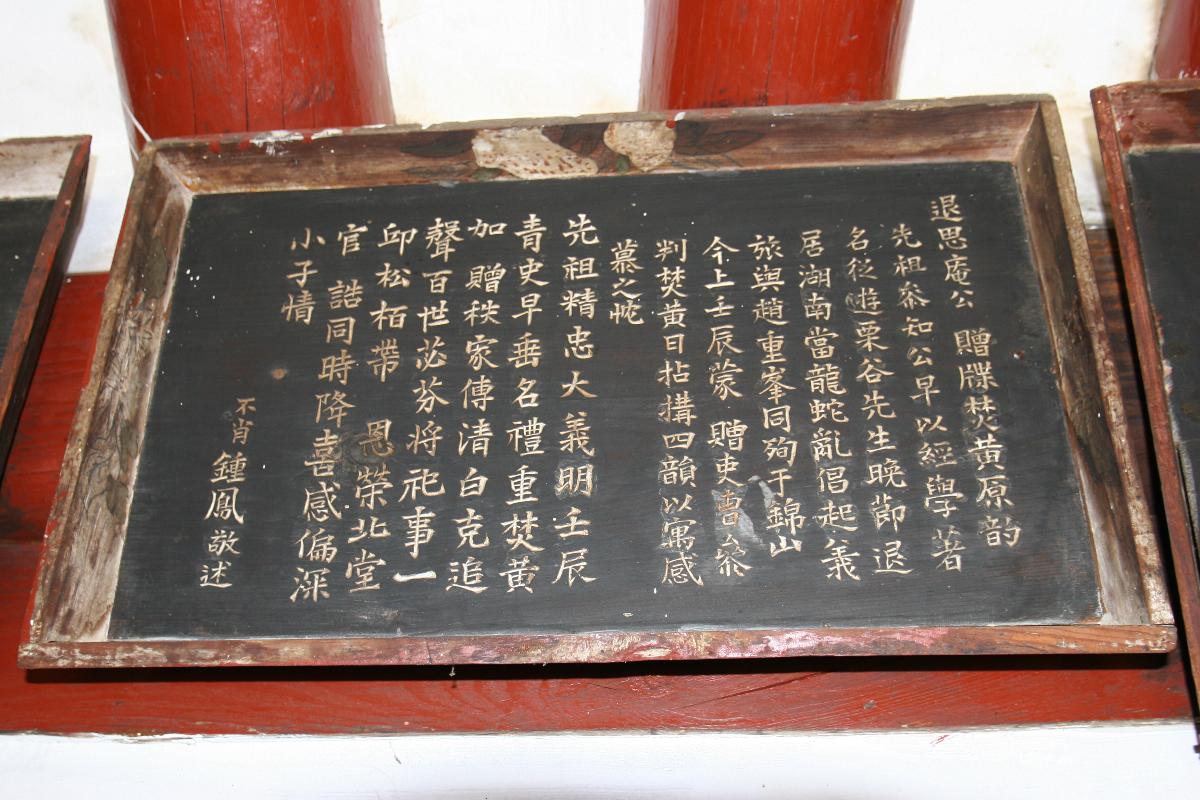 退思庵公 贈牒焚黃原韵
先祖叅知公早以經學著
名從遊栗谷先生晚節退
居湖南當龍蛇亂倡起義
旅與趙重峯同殉于錦山
今上壬辰蒙 贈吏曹叅
判焚黃日拈搆四韻以寓感
慕之忱
先祖精忠大義明壬辰
青史早垂名禮重焚黃
加 贈秩家傳清白克追
聲百世苾芬将祀事一
邱松栢帶 恩榮北堂
官 誥同時降喜感偏深
小子情
不肖 鍾鳳 敬述